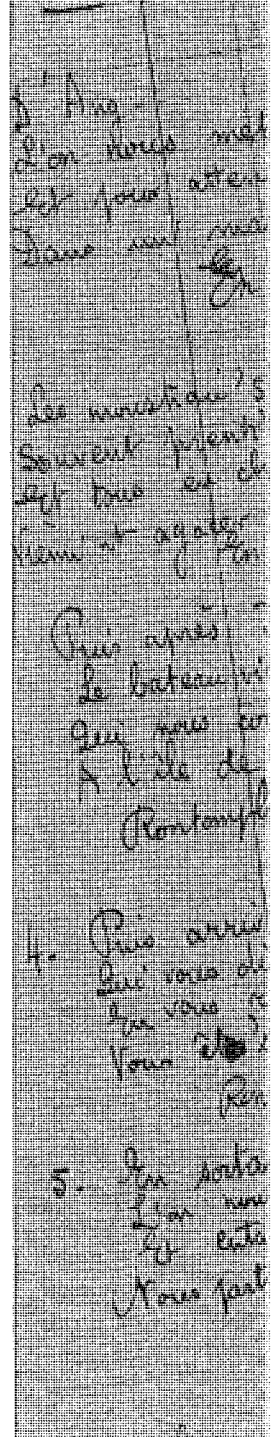 D'Ang
L'on nous met
Et pour atten
Dans un ma
En
Les moustrau's
Souvent prent'
Et tous en ch
Viennt agater
En
Puis après
Le bateau vi
Qui nous co
A l'île de
Rontompl
4. Puis arriv
Qui vous di
En vous r
Vous êtes
Ren
5. En sorta
L'on nou
Et enta
Nous part